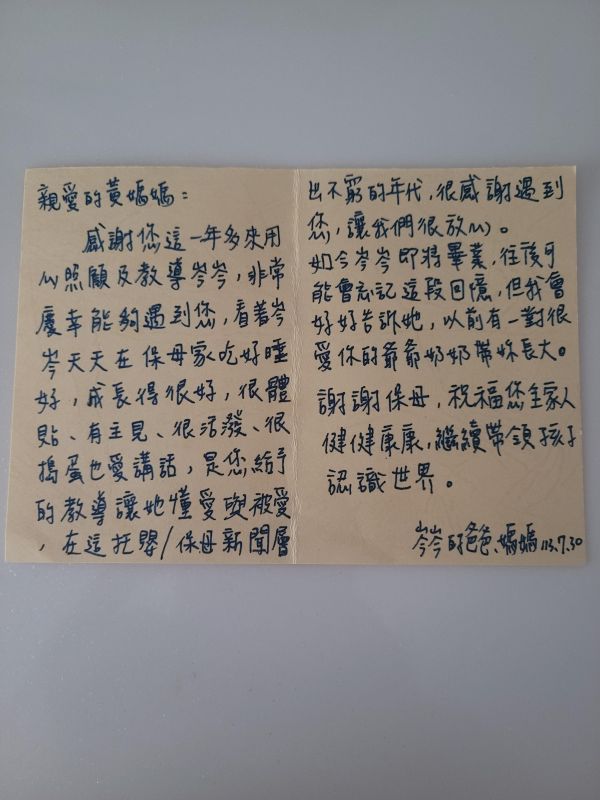 親愛的黃媽媽：
感謝您這一年多來用
心照顧及教導岑岑，非常
慶幸能夠遇到您，看著岑
岑天天在保母家吃好睡
好，成長得很好，很體
貼、有主見、很活發、很
搗蛋也愛講話，是您給予
的教導讓她懂愛與被愛
，在這托嬰/保母新聞層
出不窮的年代，很感謝遇到
您，讓我們很放心。
如今岑岑即將畢業，往後可
能會忘記這段回憶，但我會
好好告訴她，以前有一對很
愛你的爺爺奶奶帶妳長大。
謝謝保母，祝福您全家人
健健康康，繼續帶領孩子
認識世界。
岑岑的爸爸、媽媽 113.7.30